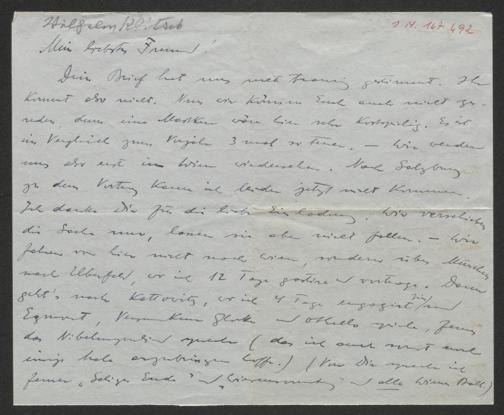 I N. 167 492
Mein liebster Freund!
Dein Brief hat uns recht traurig gestimmt. Ihr
kommt also nicht. Nun wir können Euch auch nicht zu-
reden, denn eine wäre hier sehr kostspielig. Es ist
im Vergleich zum Vorjahr 3 mal so teuer. – Wir werden
uns also erst in Wien wiedersehen. Nach Salzburg
zu dem Vortrag kann ich leider jetzt nicht kommen.
Ich danke Dir für die liebe Einladung. Wir verschieben
die Sache nur, lassen sie aber nicht fallen. – Wir
fahren von hier nicht nach Wien, sondern über München
nach Elberfeld, wo ich 12 Tage gastiere u vortrage. Dann
geht's nach Kattowitz, wo ich 4 Tage engagiert bin u
Egmont, Versunkene Glocke und Othello spiele, ferner
das Nibelungenlied spreche (das ich auch sonst noch
einige Male anzubringen hoffe.) (Von Dir spreche ich
ferner „Seliges Ende" u u alle Wiener